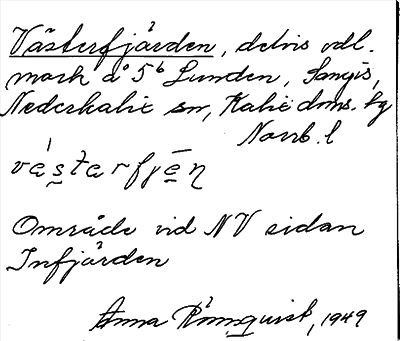 Västerfjärden, delvis odl.
mark å 5⁶ Lunden, Sangis,
Nederkalix sn, Kalix dms. hg
Norrb. l
vástarfjēn
Område vid NV sidan
Infjärden
Anna Rönnquist, 1949